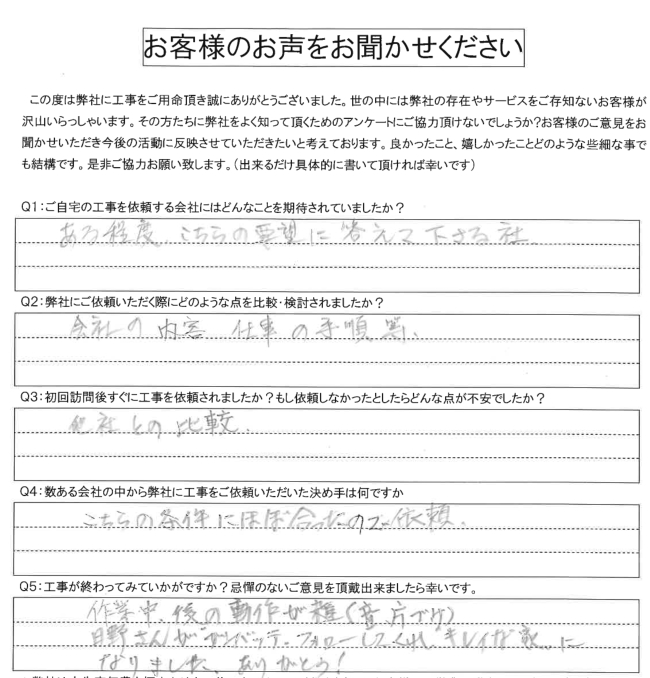 お客様のお声をお聞かせください
この度は弊社に工事をご用命頂き誠にありがとうございました。世の中には弊社の存在やサービスをご存知ないお客様が
沢山いらっしゃいます。その方たちに弊社をよく知って頂くためのアンケートにご協力頂けないでしょうか?お客様のご意見をお
聞かせいただき今後の活動に反映させていただきたいと考えております。良かったこと、嬉しかったことどのような些細な事で
も結構です。是非ご協力お願い致します。(出来るだけ具体的に書いて頂ければ幸いです)
Q1:ご自宅の工事を依頼する会社にはどんなことを期待されていましたか?
ある程度、こちらの要望に答えて下さる社
Q2:弊社にご依頼いただく際にどのような点を比較・検討されましたか?
会社の内容 仕事の手順等、
Q3:初回訪問後すぐに工事を依頼されましたか?もし依頼しなかったとしたらどんな点が不安でしたか?
他社との比較、
Q4:数ある会社の中から弊社に工事をご依頼いただいた決め手は何ですか
こちらの条件にほぼ合ったので依頼、
Q5:工事が終わってみていかがですか?忌憚のないご意見を頂戴出来ましたら幸いです。
作業中、後の動作が雑(音、片づけ)
日野さんがガンバッテ、フォローしてくれ、キレイな家に
なりました、ありがとう!